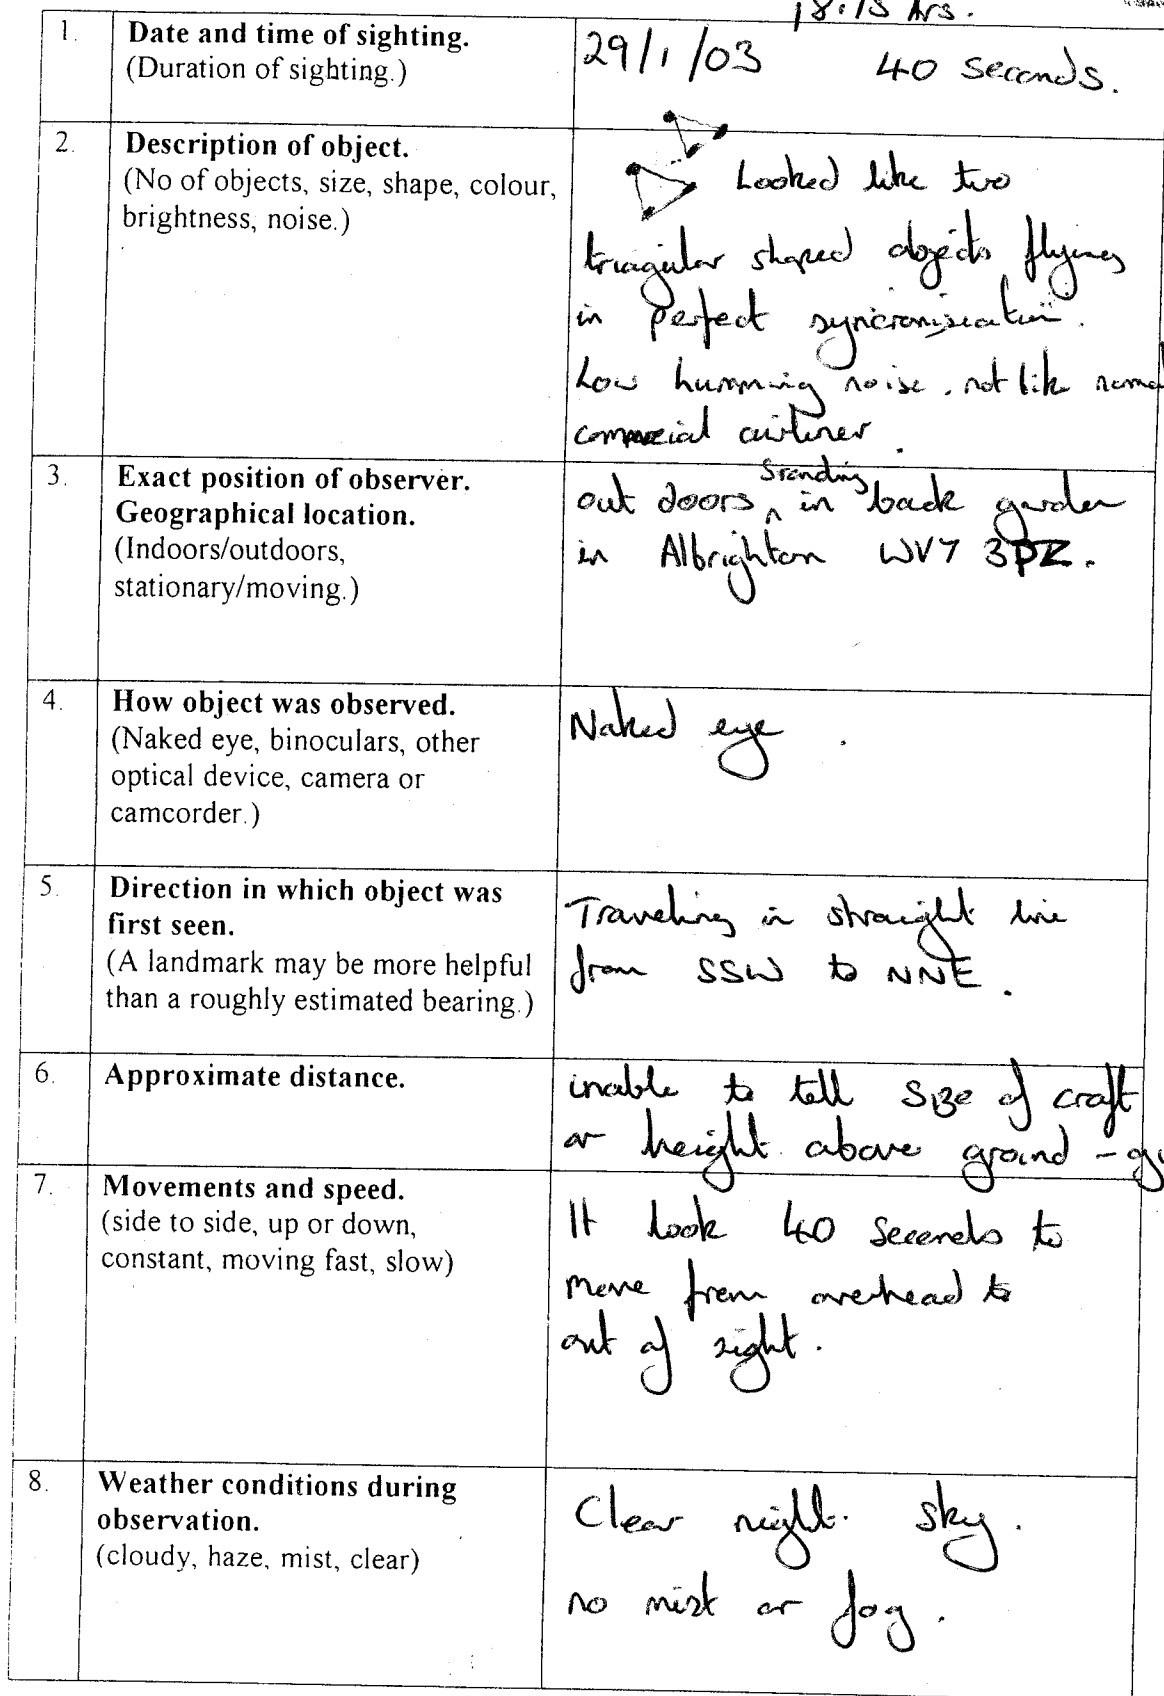 18:15 hrs.
1. Date and time of sighting.
(Duration of sighting.)
29/1/03 40 seconds.
2. Description of object.
(No of objects, size, shape, colour,
brightness, noise.)
Looked like two
triagular shaped objects flying
in perfect syncronisication.
Low humming noise. not like
commercial airliner.
3. Exact position of observer.
Geographical location.
(Indoors/outdoors,
stationary/moving.)
out doors standing in back garden
in Albrighton WV7 3PZ.
4. How object was observed.
(Naked eye, binoculars, other
optical device, camera or
camcorder.)
Naked eye.
5. Direction in which object was
first seen.
(A landmark may be more helpful
than a roughly estimated bearing.)
Traveling in straight line
from SSW to NNE.
6. Approximate distance.
unable to tell size of craft
or height above ground -
7. Movements and speed.
(side to side, up or down,
constant, moving fast, slow)
It took 40 seconds to
move from overhead to
out of sight.
8. Weather conditions during
observation.
(cloudy, haze, mist, clear)
Clear night. sky.
no mist or fog.